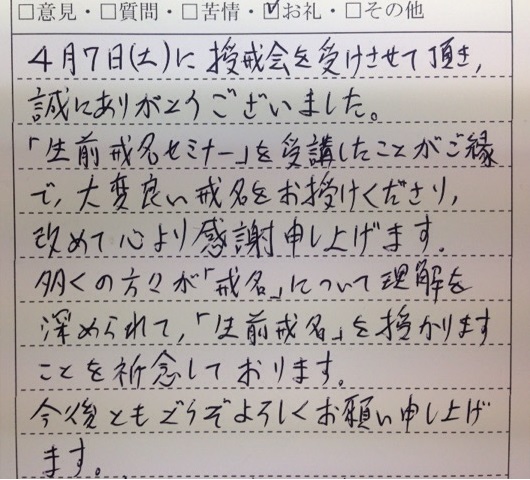 □意見・□質問・□苦情・☑お礼・□その他
4月7日(土)に授戒会を受けさせて頂き,
誠にありがとうございました。
「生前戒名セミナー」を受講したことがご縁
で,大変良い戒名をお授けくださり,
改めて心より感謝申し上げます.
多くの方々が「戒名」について理解を
深められて,「生前戒名」を授かります
ことを祈念しております。
今後ともどうぞよろしくお願い申し上げ
ます。